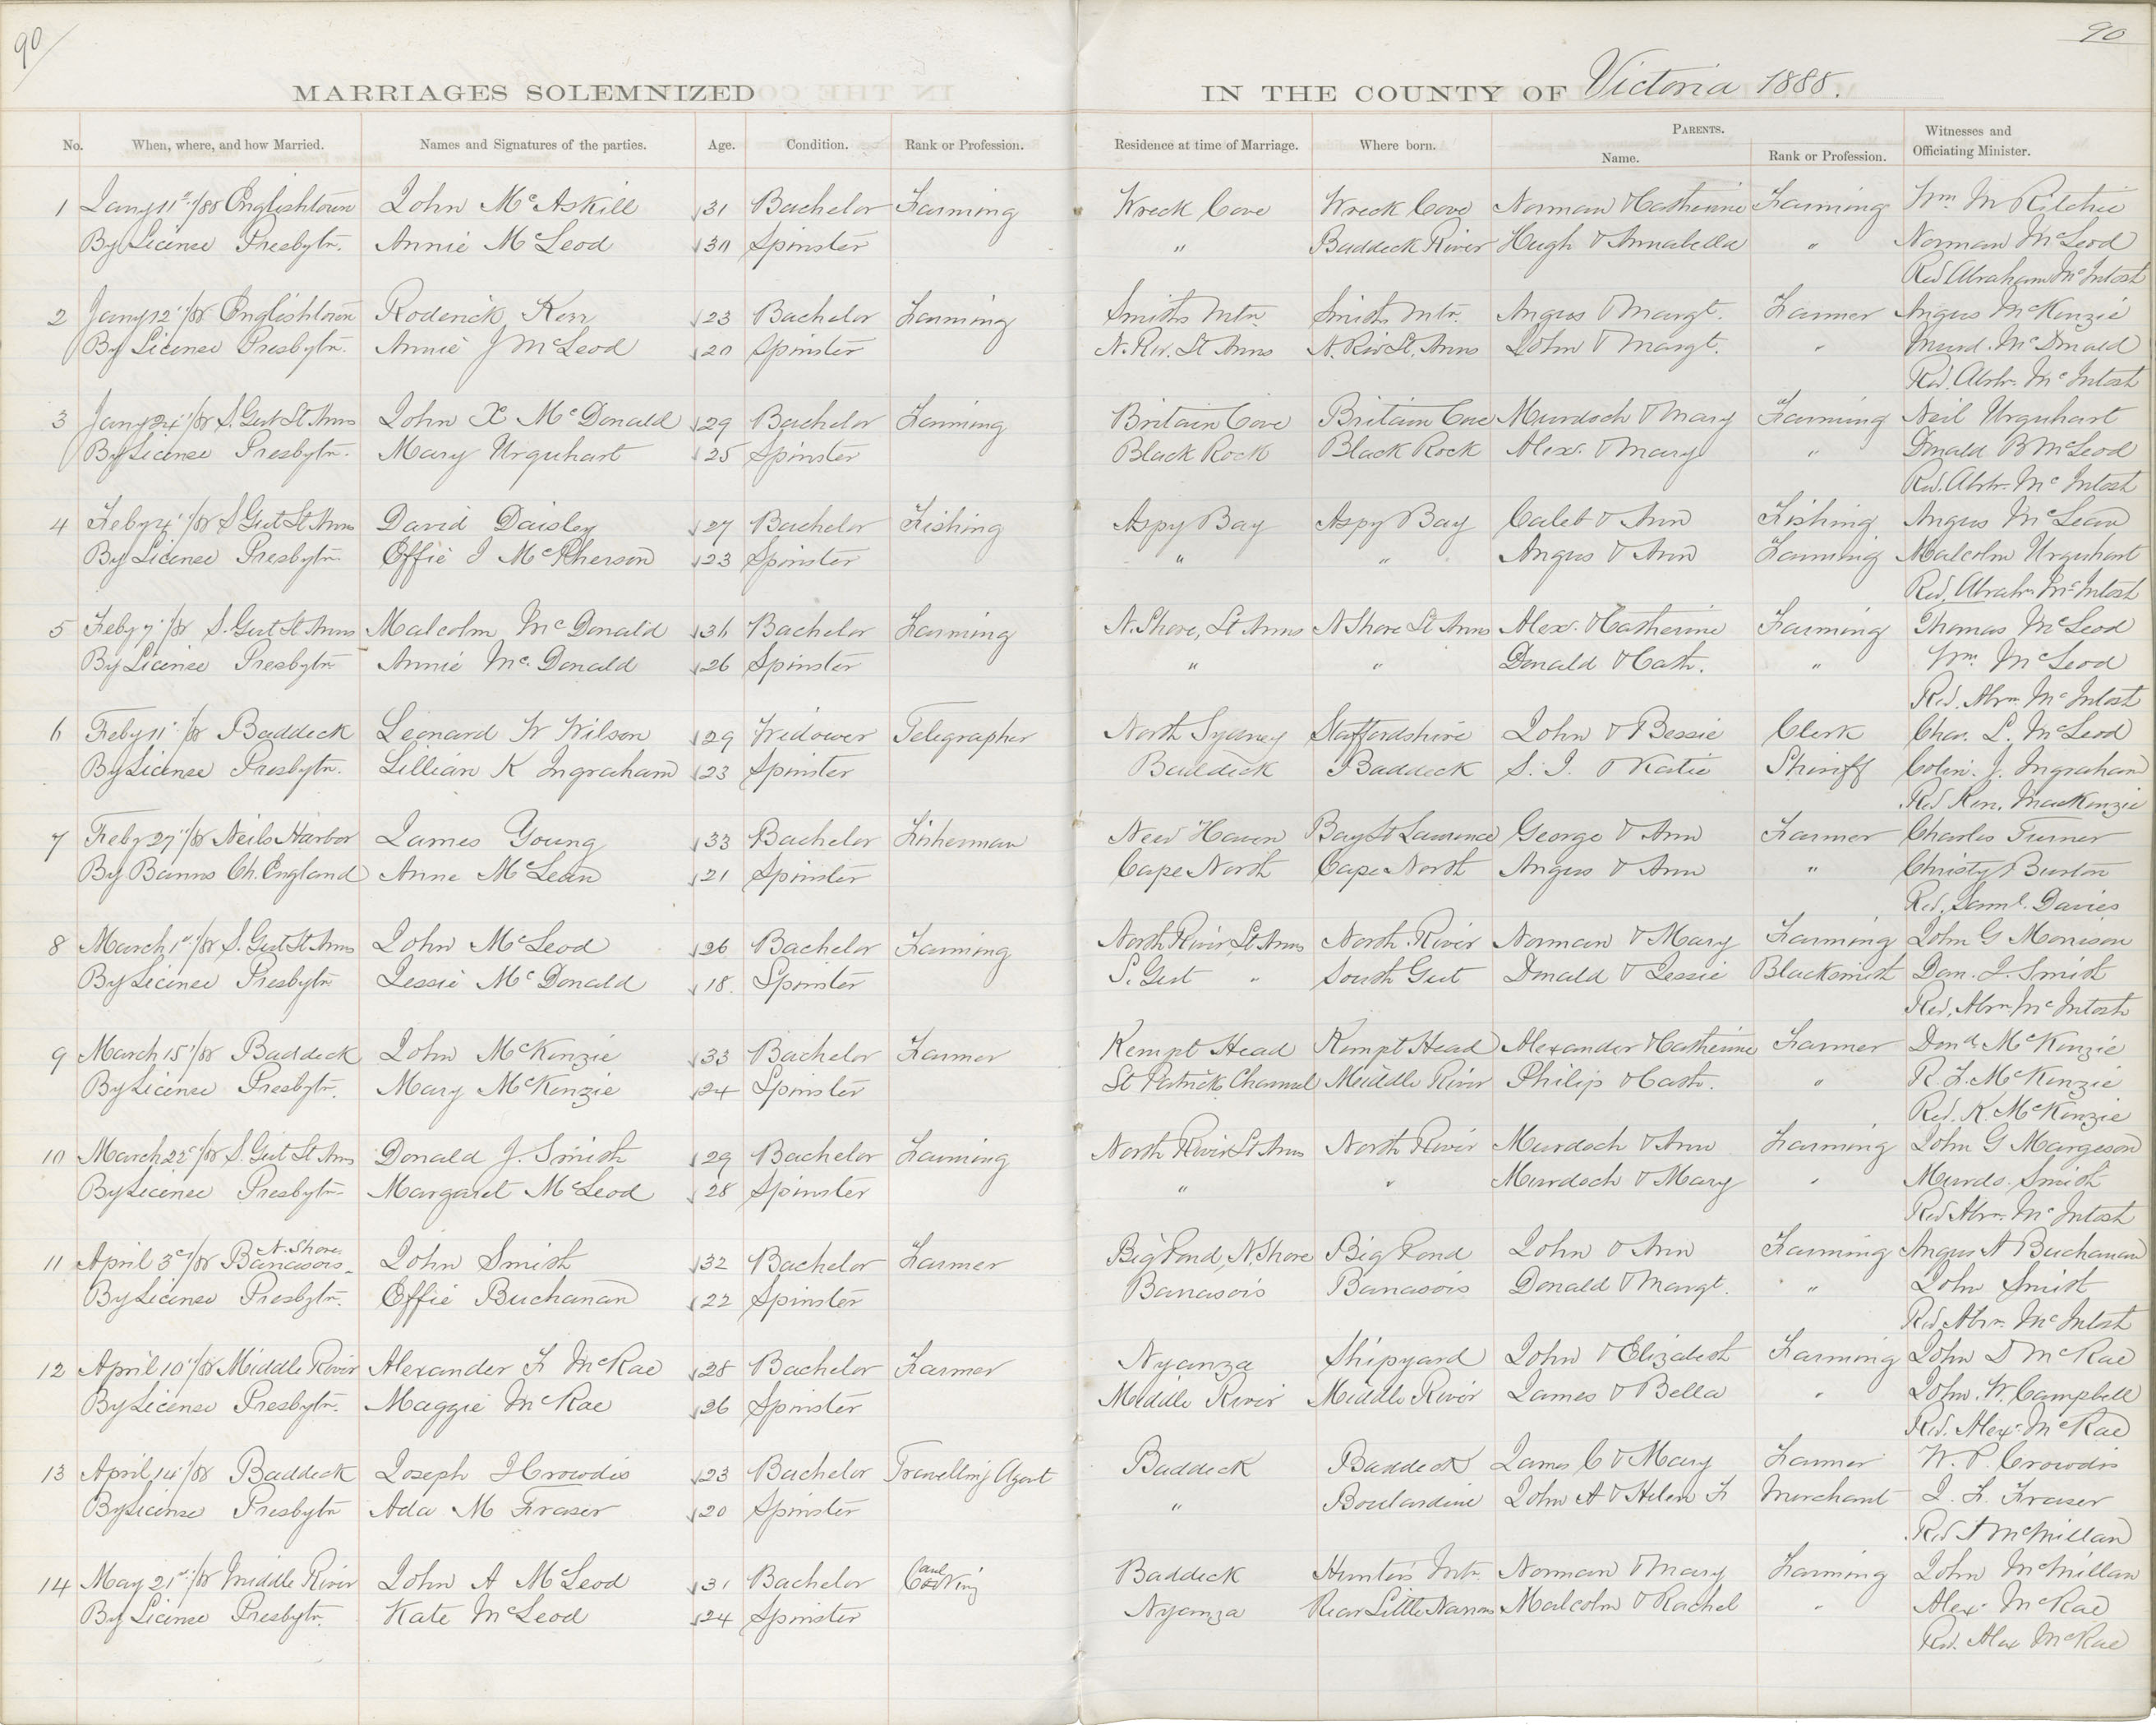 90
90
MARRIAGES SOLEMNIZED IN THE COUNTY OF Victoria 1888.
No. When, where, and how Married. Names and Signatures of the parties. Age. Condition. Rank or Profession. Residence at time of Marriage. Where born. PARENTS. Name. Rank or Profession. Witnesses and Officiating Minister.
1 Jany 11th/88 Englishtown John McAskill 31 Bachelor Farming Wreck Cove Wreck Cove Norman & Catherine Farming Wm M Ritchie
By License Presbytn. Annie McLeod 30 Spinster " Baddeck River Hugh & Annabella " Norman McLeod
Rev Abraham McIntosh
2 Jany 12"/88 Englishtown Roderick Kerr 23 Bachelor Farming Smiths Mtn. Smiths Mtn. Angus & Margt. Farmer Angus McKenzie
By License Presbytn. Annie J McLeod 20 Spinster N. Riv. St Anns N. Riv St. Anns John & Margt. " Murd. McDonald
Rev. Abrhm McIntosh
3 Jany 24"/88 S. Gut St Anns John X McDonald 29 Bachelor Farming Britain Cove Britain Cove Murdoch & Mary Farming Neil Urquhart
By License Presbytn. Mary Urquhart 25 Spinster Black Rock Black Rock Alex. & Mary " Donald B McLeod
Rev. Abrhm McIntosh
4 Feby 4"/88 S Gut St Anns David Daisley 27 Bachelor Fishing Aspy Bay Aspy Bay Caleb & Ann Fishing Angus McLean
By License Presbytn. Effie J McPherson 23 Spinster " " Angus & Ann Farming Malcolm Urquhart
Rev. Abrahm McIntosh
5 Feby 7"/88 S. Gut St Anns Malcolm McDonald 36 Bachelor Farming N. Shore, St Anns N Shore St Anns Alex. & Catherine Farming Thomas McLeod
By License Presbytn Annie McDonald 26 Spinster " " Donald & Cath. " Wm. McLeod
Rev. Abrm McIntosh
6 Feby 11"/88 Baddeck Leonard W Wilson 29 Widower Telegrapher North Sydney Staffordshire John & Bessie Clerk Chas. L. McLeod
By License Presbytn. Lillian K Ingraham 23 Spinster Baddeck Baddeck S. J. & Katie Sheriff Colin. J. Ingraham
Rev Ken. MacKenzie
7 Feby 27"/88 Neils Harbor James Young 33 Bachelor Fisherman New Haven Bay St Laurence George & Ann Farmer Charles Turner
By Banns Ch. England Anne McLean 21 Spinster Cape North Cape North Angus & Ann " Christy Burton
Rev. Saml. Davies
8 March 1st/88 S. Gut St Anns John McLeod 26 Bachelor Farming North River, St Anns North River Norman & Mary Farming John G Morrison
By License Presbytn Jessie McDonald 18 Spinster S. Gut " South Gut Donald & Jessie Blacksmith Dan. J. Smith
Rev. Abrm McIntosh
9 March 15"/88 Baddeck John McKenzie 33 Bachelor Farmer Kempt Head Kempt Head Alexander & Catherine Farmer Dond. McKenzie
By License Presbytn. Mary McKenzie 24 Spinster St Patricks Channel Middle River Philip & Cath. " R. F. McKenzie
Rev. K. McKenzie
10 March 22"/88 S. Gut St Anns Donald J. Smith 29 Bachelor Farming North River St Anns North River Murdoch & Ann Farming John G Margeson
By License Presbytn. Margaret McLeod 28 Spinster " " Murdoch & Mary " Murdo. Smith
Rev Abrm. McIntosh
11 April 3d/88 N. Shore, Banasois John Smith 32 Bachelor Farmer Big Pond, N. Shore Big Pond John & Ann Farming Angus A Buchanan
By License Presbytn. Effie Buchanan 22 Spinster Banasois Banasois Donald & Margt. " John Smith
Rev. Abrm. McIntosh
12 April 10"/88 Middle River Alexander F McRae 28 Bachelor Farmer Nyanza Shipyard John & Elizabeth Farming John D McRae
By License Presbytn. Maggie McRae 26 Spinster Middle River Middle River James & Bella " John. W. Campbell
Rev. Alex. McRae
13 April 14"/88 Baddeck Joseph J Crowdis 23 Bachelor Travelling Agent Baddeck Baddeck James C & Mary Farmer W. P. Crowdis
By License Presbytn Ada M Fraser 20 Spinster " Boulardine John A & Helen F Merchant J. F. Fraser
Rev J McMillan
14 May 21st/88 Middle River John A McLeod 31 Bachelor Caulking Baddeck Hunters Mtn. Norman & Mary Farming John McMillan
By License Presbytn. Kate McLeod 24 Spinster Nyanza Rear Little Narrows Malcolm & Rachel " Alex McRae
Rev. Alex McRae